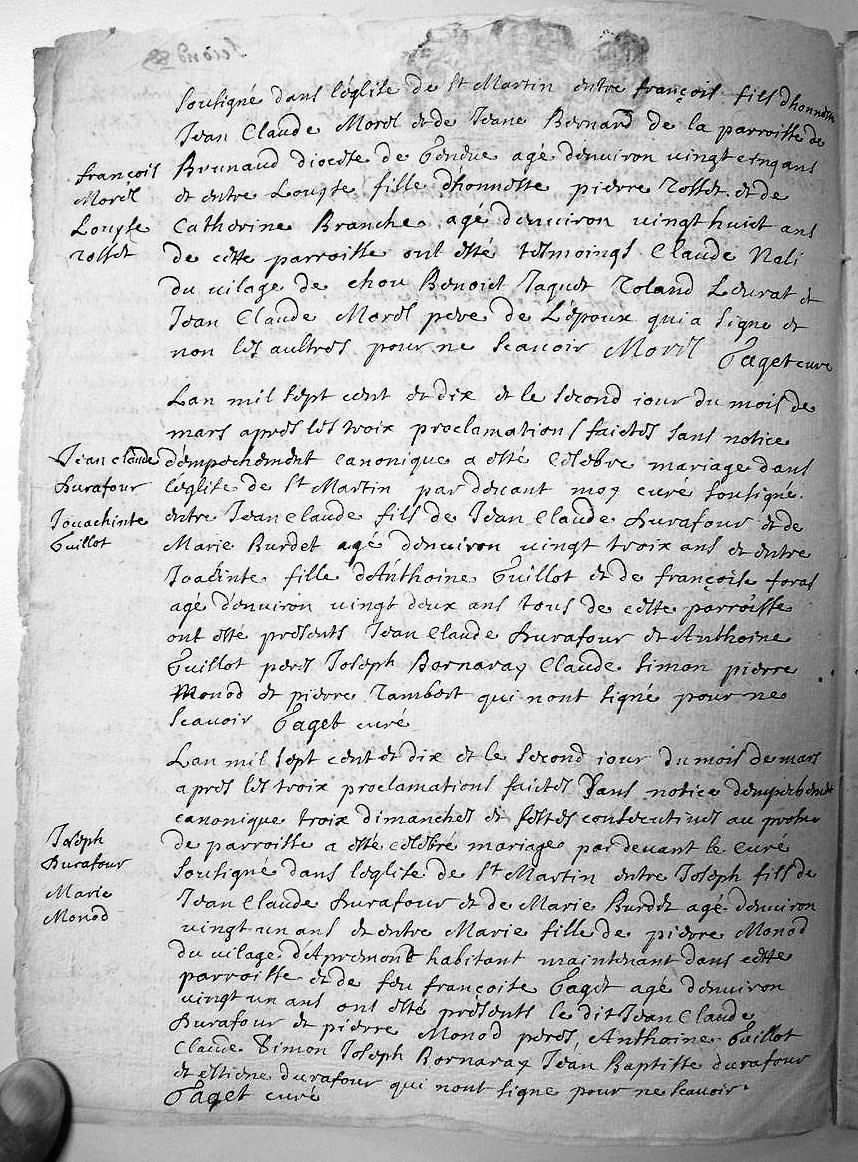 second
sousigné dans l'église de St Martin entre françois fils d'honneste
Jean Claude Morel et de Jeane Bernard de la parroisse de
françois
Morél
Louyse
rosset
Brunaud diocese de Geneve agé d'environ vingt cinq ans
et entre Louyse fille d'honneste pierre rosset et de
Catherine Branche agé d'environ vingt huict ans
de cette parroisse ont esté tesmoings Claude Nali
du vilage de chou Benoict Jaquet Roland Levrat et
Jean Claude Morel pere de L'époux qui a signe et
non les aultres pour ne scavoir Morel Gaget curé
Lan mil sept cent et dix et le second iour du mois de
mars apres les troix proclamations faictes sans notice
Jean claude
Durafour
Jouachinte
Guillot
d'empechement canonique a esté célébre mariage dans
l'eglise de St Martin par devant moy curé sousigné
entre Jean claude fils de Jean Claude Durafour et de
Marie Burdet agé d'environ vingt troix ans et entre
Joacinte fille d'Anthoine Guillot et de françoise foras
agé d'environ vingt deux ans tous de cette parroisse
ont esté présents Jean Claude Durafour et Anthoine
Guillot peres Joseph Bornaray Claude Simon pierre
Monod et pierre rambert qui n'ont signé pour ne
scavoir Gaget curé
Lan mil sept cent et dix et le second iour du mois de mars
apres les troix proclamations faictes sans notice d'empechement
canonique troix dimanches et festes consecutives au prosne
Joseph
Durafour
Marie
Monod
de parroisse a esté célébré mariage par devant le curé
sousigné dans l'eglise de St Martin entre Joseph fils de
Jean Claude Durafour et de Marie Burdet agé d'environ
vingt un ans et entre Marie fille de pierre Monod
du vilage d'Apremont habitant maintenant dans cette
parroisse et de feu françoise Gaget agé d'environ
vingt un ans ont esté présents le dit Jean Claude
Durafour et pierre Monod peres, Anthoine Guillot
Claude Simon Joseph Bornaray Jean Baptiste durafour
et estiene durafour qui n'ont signe pour ne scavoir
Gaget curé